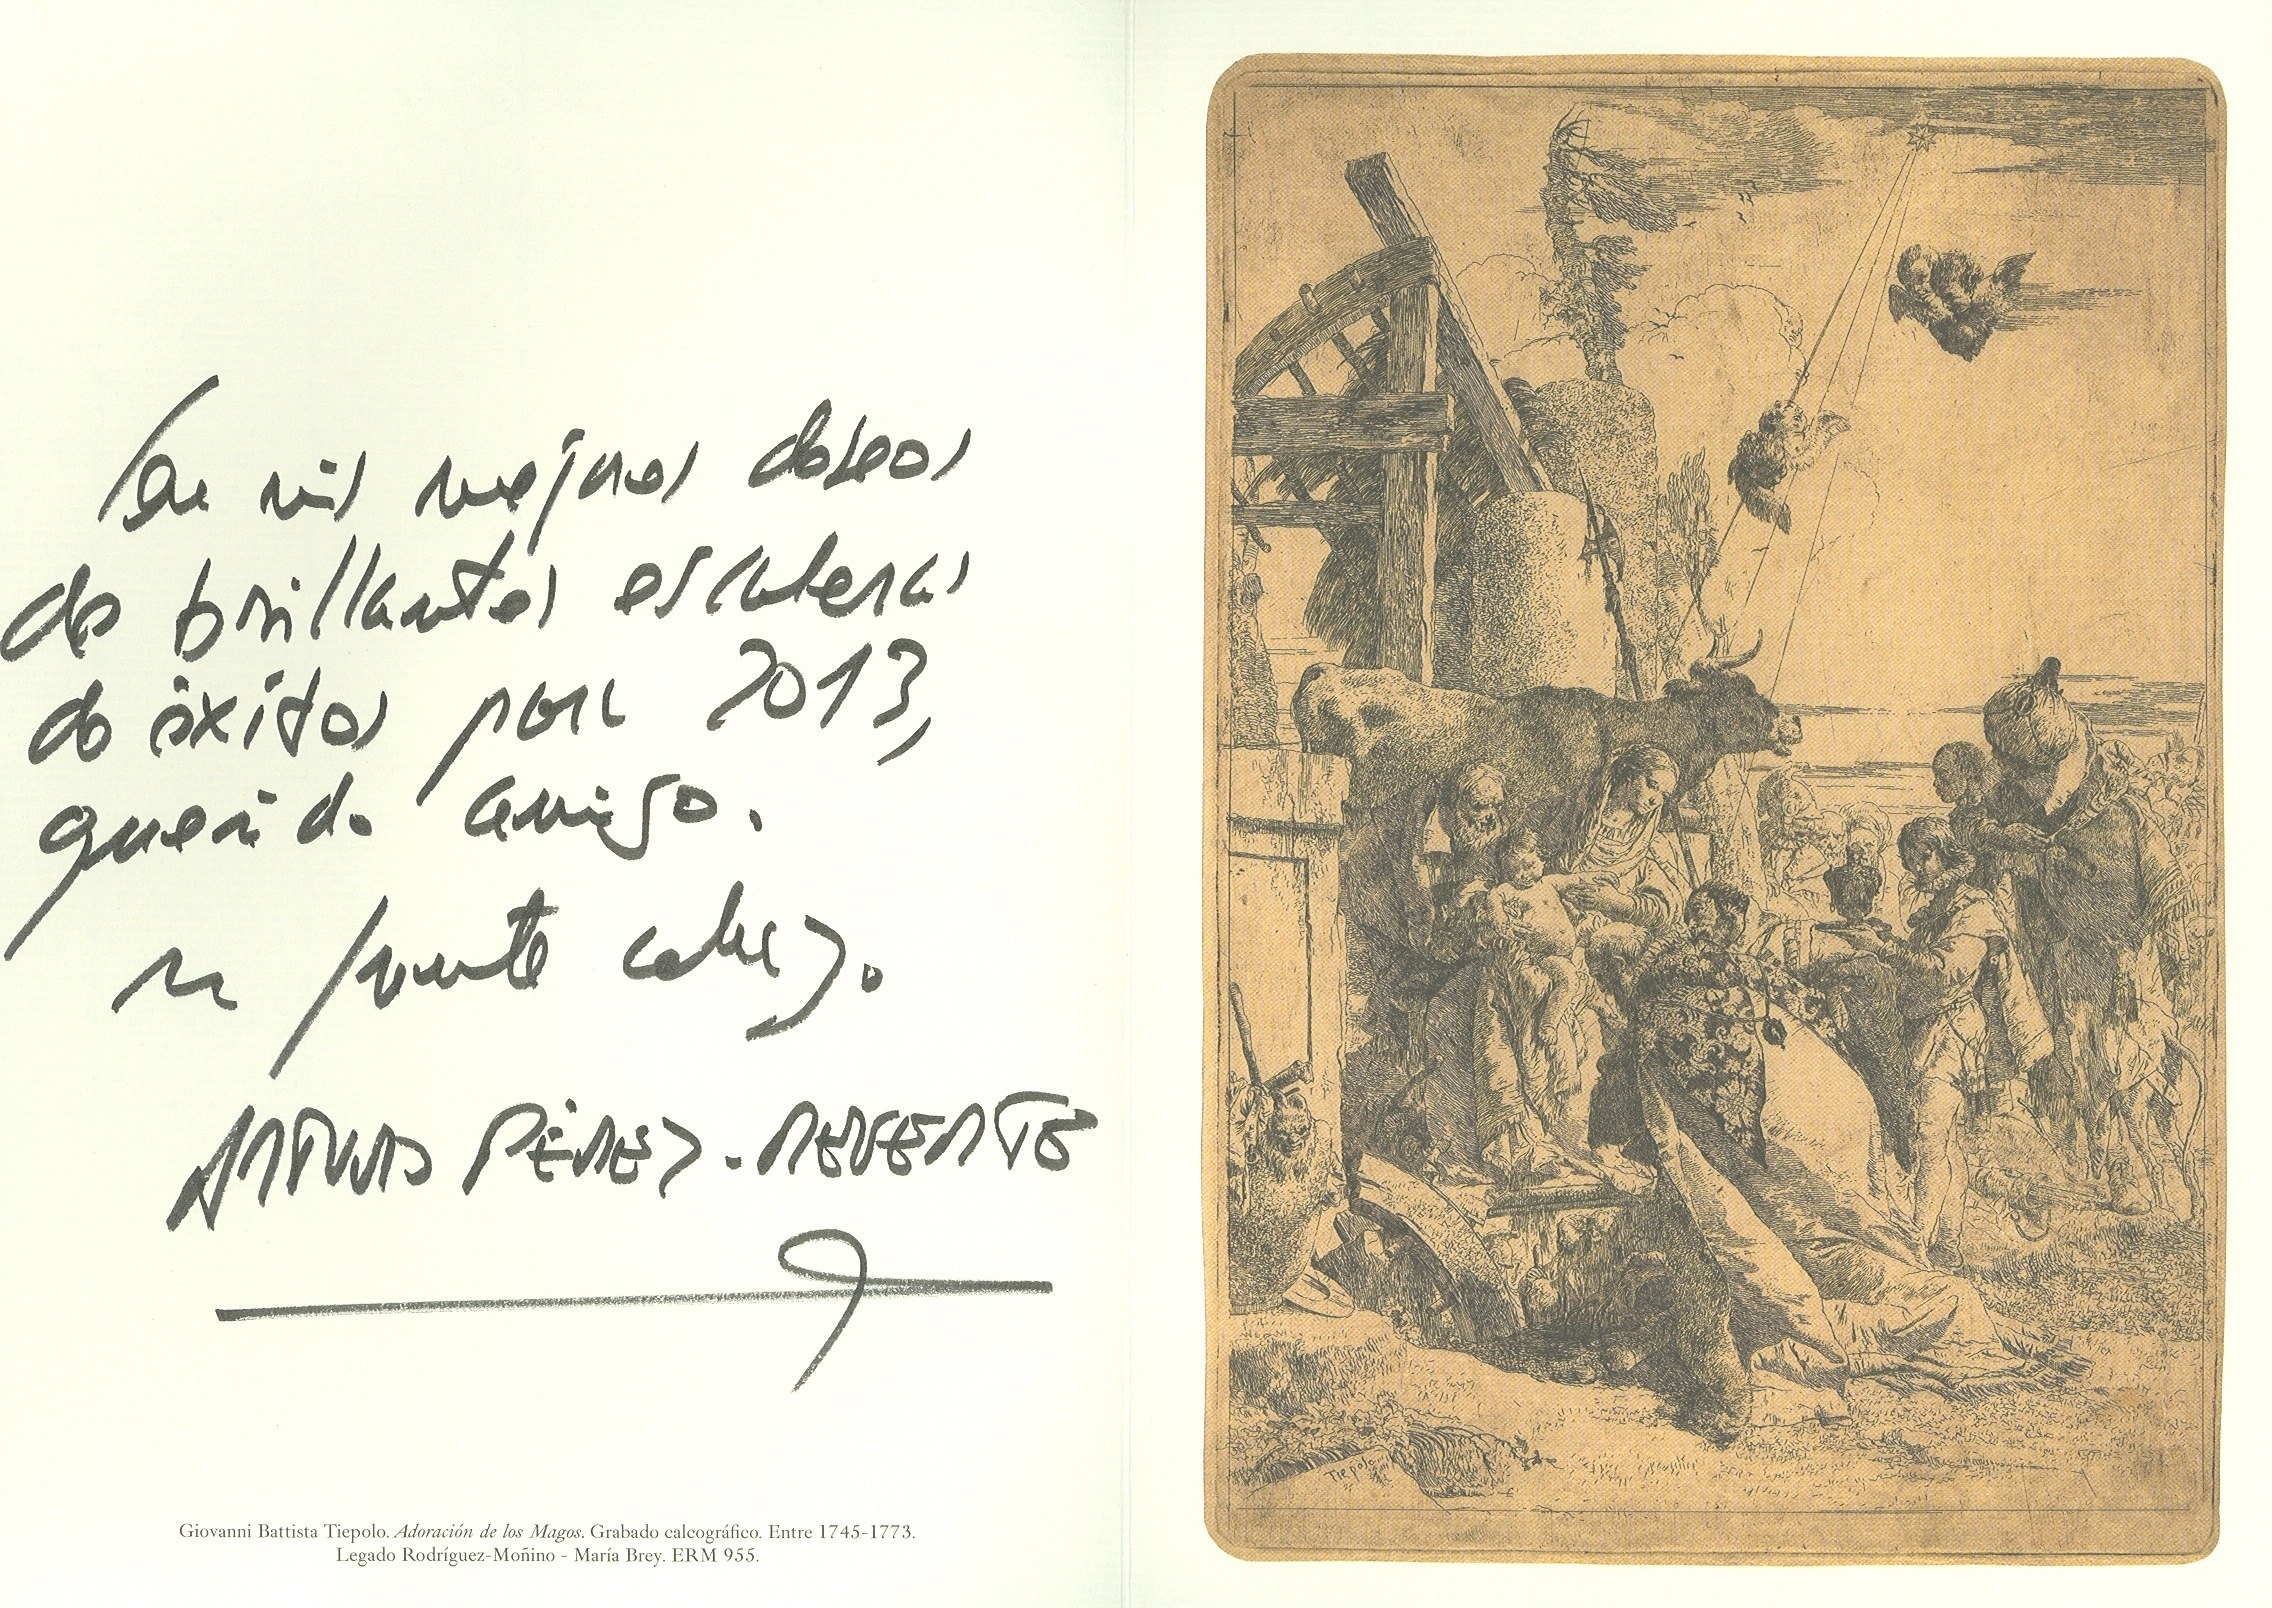 Con mis mejores deseos
de brillantes escaleras
de éxitos para 2013,
querido amigo.
Un fuerte abrazo.
ARTURO PÉREZ-REVERTE
Giovanni Battista Tiepolo. Adoración de los Magos. Grabado calcográfico. Entre 1745-1773.
Legado Rodríguez-Moñino - María Brey. ERM 955.
Tiepolo